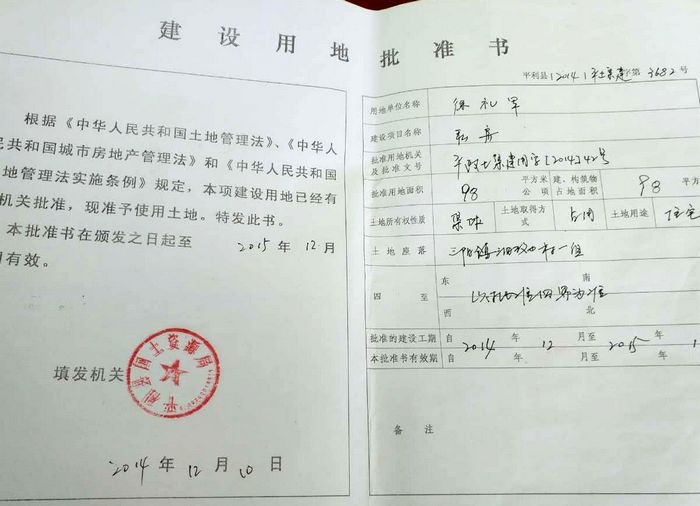 建设用地批准书
根据《中华人民共和国土地管理法》、《中华人
民共和国城市房地产管理法》和《中华人民共和国
地管理法实施条例》规定，本项建设用地已经有
机关批准，现准予使用土地。特发此书。
本批准书在颁发之日起至 2015 年 12 月
有效。
平利县国土资源局
填发机关
2014 年 12 月 10 日
平利县(2014)平土集建字第3682号
用地单位名称 徐礼军
建设项目名称
批准用地机关及批准文号 平政土集建用字[2014]42号
批准用地面积 98 平方米 公顷 建、构筑物占地面积 98 平方
土地所有权性质 集体 土地取得方式 占用 土地用途 住宅
土地座落 三阳镇 村一组
四至 东 南 西 北 以实地 准四界为准
批准的建设工期 自 2014 年 12 月至 2015 年 1
本批准书有效期 自 年 月至 年
备注